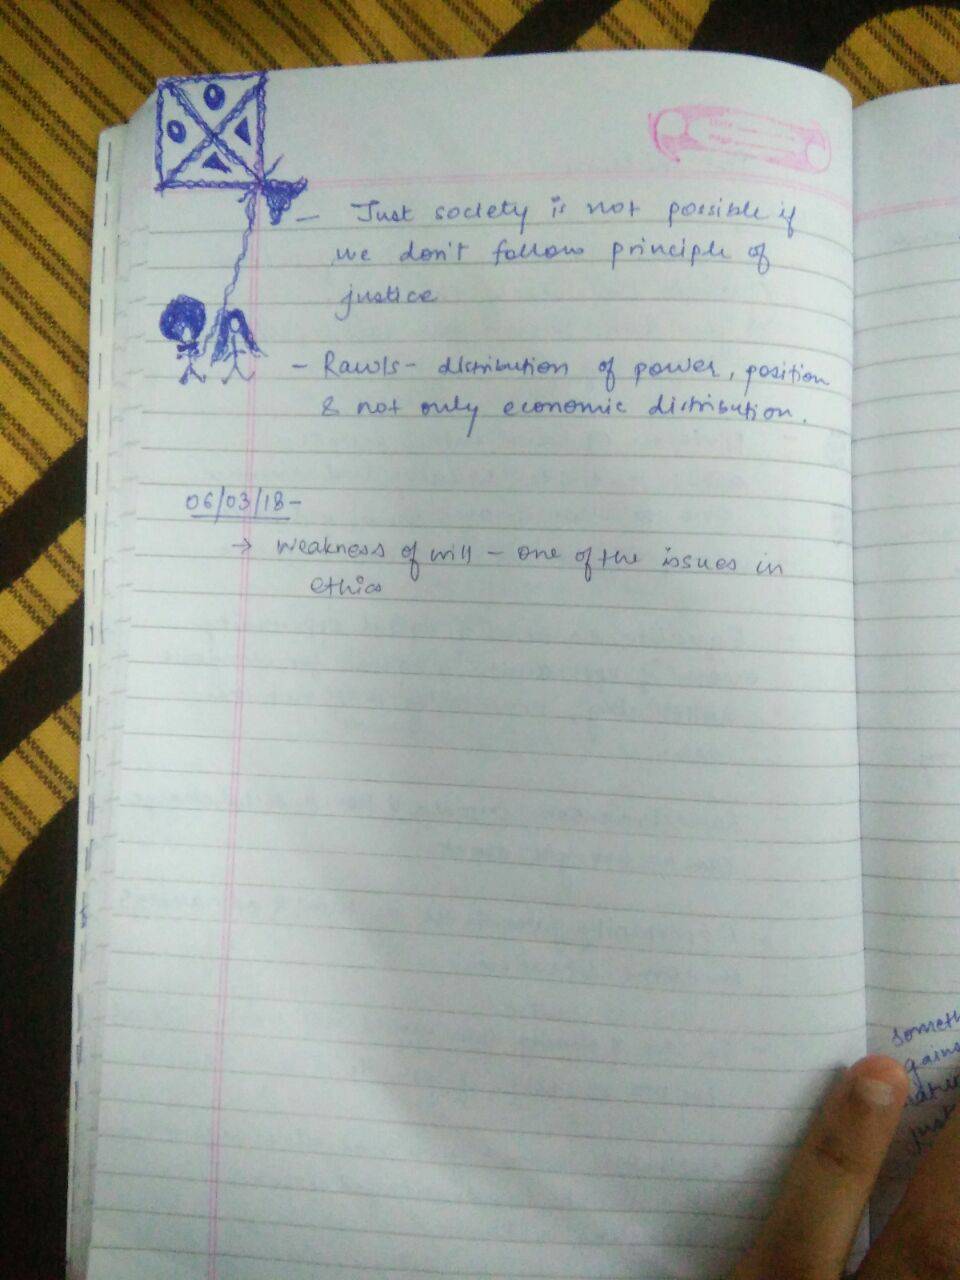 - Just society is not possible if
we don't follow principle of
justice
- Rawls - distribution of power, position
& not only economic distribution.
06/03/18-
→ weakness of will - one of the issues in
ethics
someth
gains
just